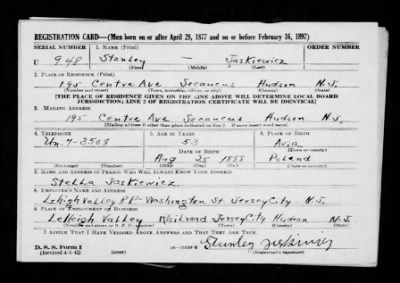 REGISTRATION CARD—(Men born on or after April 28, 1877 and on or before February 16, 1897)
SERIAL NUMBER 1. NAME (Print) ORDER NUMBER
U 948 Stanley — Jaskiewicz
(First) (Middle) (Last)
2. PLACE OF RESIDENCE (Print)
195 Centre Ave Secaucus Hudson N.J.
(Number and street) (Town, township, village, or city) (County) (State)
[THE PLACE OF RESIDENCE GIVEN ON THE LINE ABOVE WILL DETERMINE LOCAL BOARD
JURISDICTION; LINE 2 OF REGISTRATION CERTIFICATE WILL BE IDENTICAL]
3. MAILING ADDRESS
195 Centre Ave Secaucus Hudson N.J.
[Mailing address if other than place indicated on line 2. If same insert word same]
4. TELEPHONE 5. AGE IN YEARS 6. PLACE OF BIRTH
Un. 7-3508 53
DATE OF BIRTH (Town or county)
Aug 25 1888 Poland
(Exchange) (Number) (Mo.) (Day) (Yr.) (State or country)
7. NAME AND ADDRESS OF PERSON WHO WILL ALWAYS KNOW YOUR ADDRESS
Stella Jaskiewicz
8. EMPLOYER'S NAME AND ADDRESS
Lehigh Valley RR Washington St Jersey City N.J.
9. PLACE OF EMPLOYMENT OR BUSINESS
LeHigh Valley Railroad Jersey City Hudson N.J.
(Number and street or R. F. D. number) (Town) (County) (State)
I AFFIRM THAT I HAVE VERIFIED ABOVE ANSWERS AND THAT THEY ARE TRUE.
D. S. S. Form 1
(Revised 4-1-42) (Registrant's signature)
Stanley Jaskiewicz